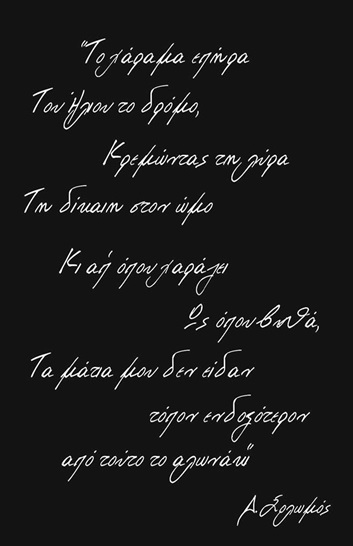 "Το χάραμα επήρα
Του ήλιου το δρόμο,
Κρεμώντας τη λύρα
Τη δίκαιη στον ώμο
Κι απ' όπου χαράζει
Ως όπου βυθά,
Τα μάτια μου δεν είδαν
τόπον ενδοξότερον
από τούτο το αλωνάκι"
Δ. Σολωμός